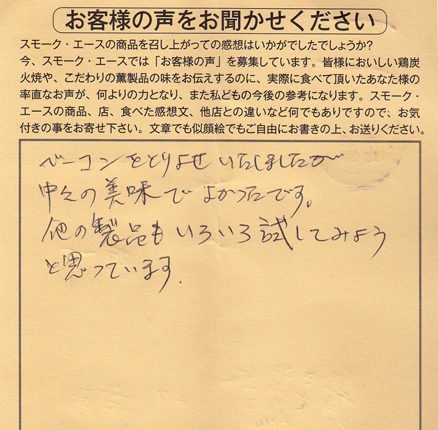 お客様の声をお聞かせください
スモーク・エースの商品を召し上がっての感想はいかがでしたでしょうか?
今、スモーク・エースでは「お客様の声」を募集しています。皆様においしい鶏炭
火焼や、こだわりの薫製品の味をお伝えするのに、実際に食べて頂いたあなた様の
率直なお声が、何よりの力となり、また私どもの今後の参考になります。スモーク・
エースの商品、店、食べた感想文、他店との違いなど何でもありですので、お気
付きの事をお寄せ下さい。文章でも似顔絵でもご自由にお書きの上、お送りください。
ベーコンをとりよせいたしましたが
中々の美味でよかったです。
他の製品もいろいろ試してみよう
と思っています.